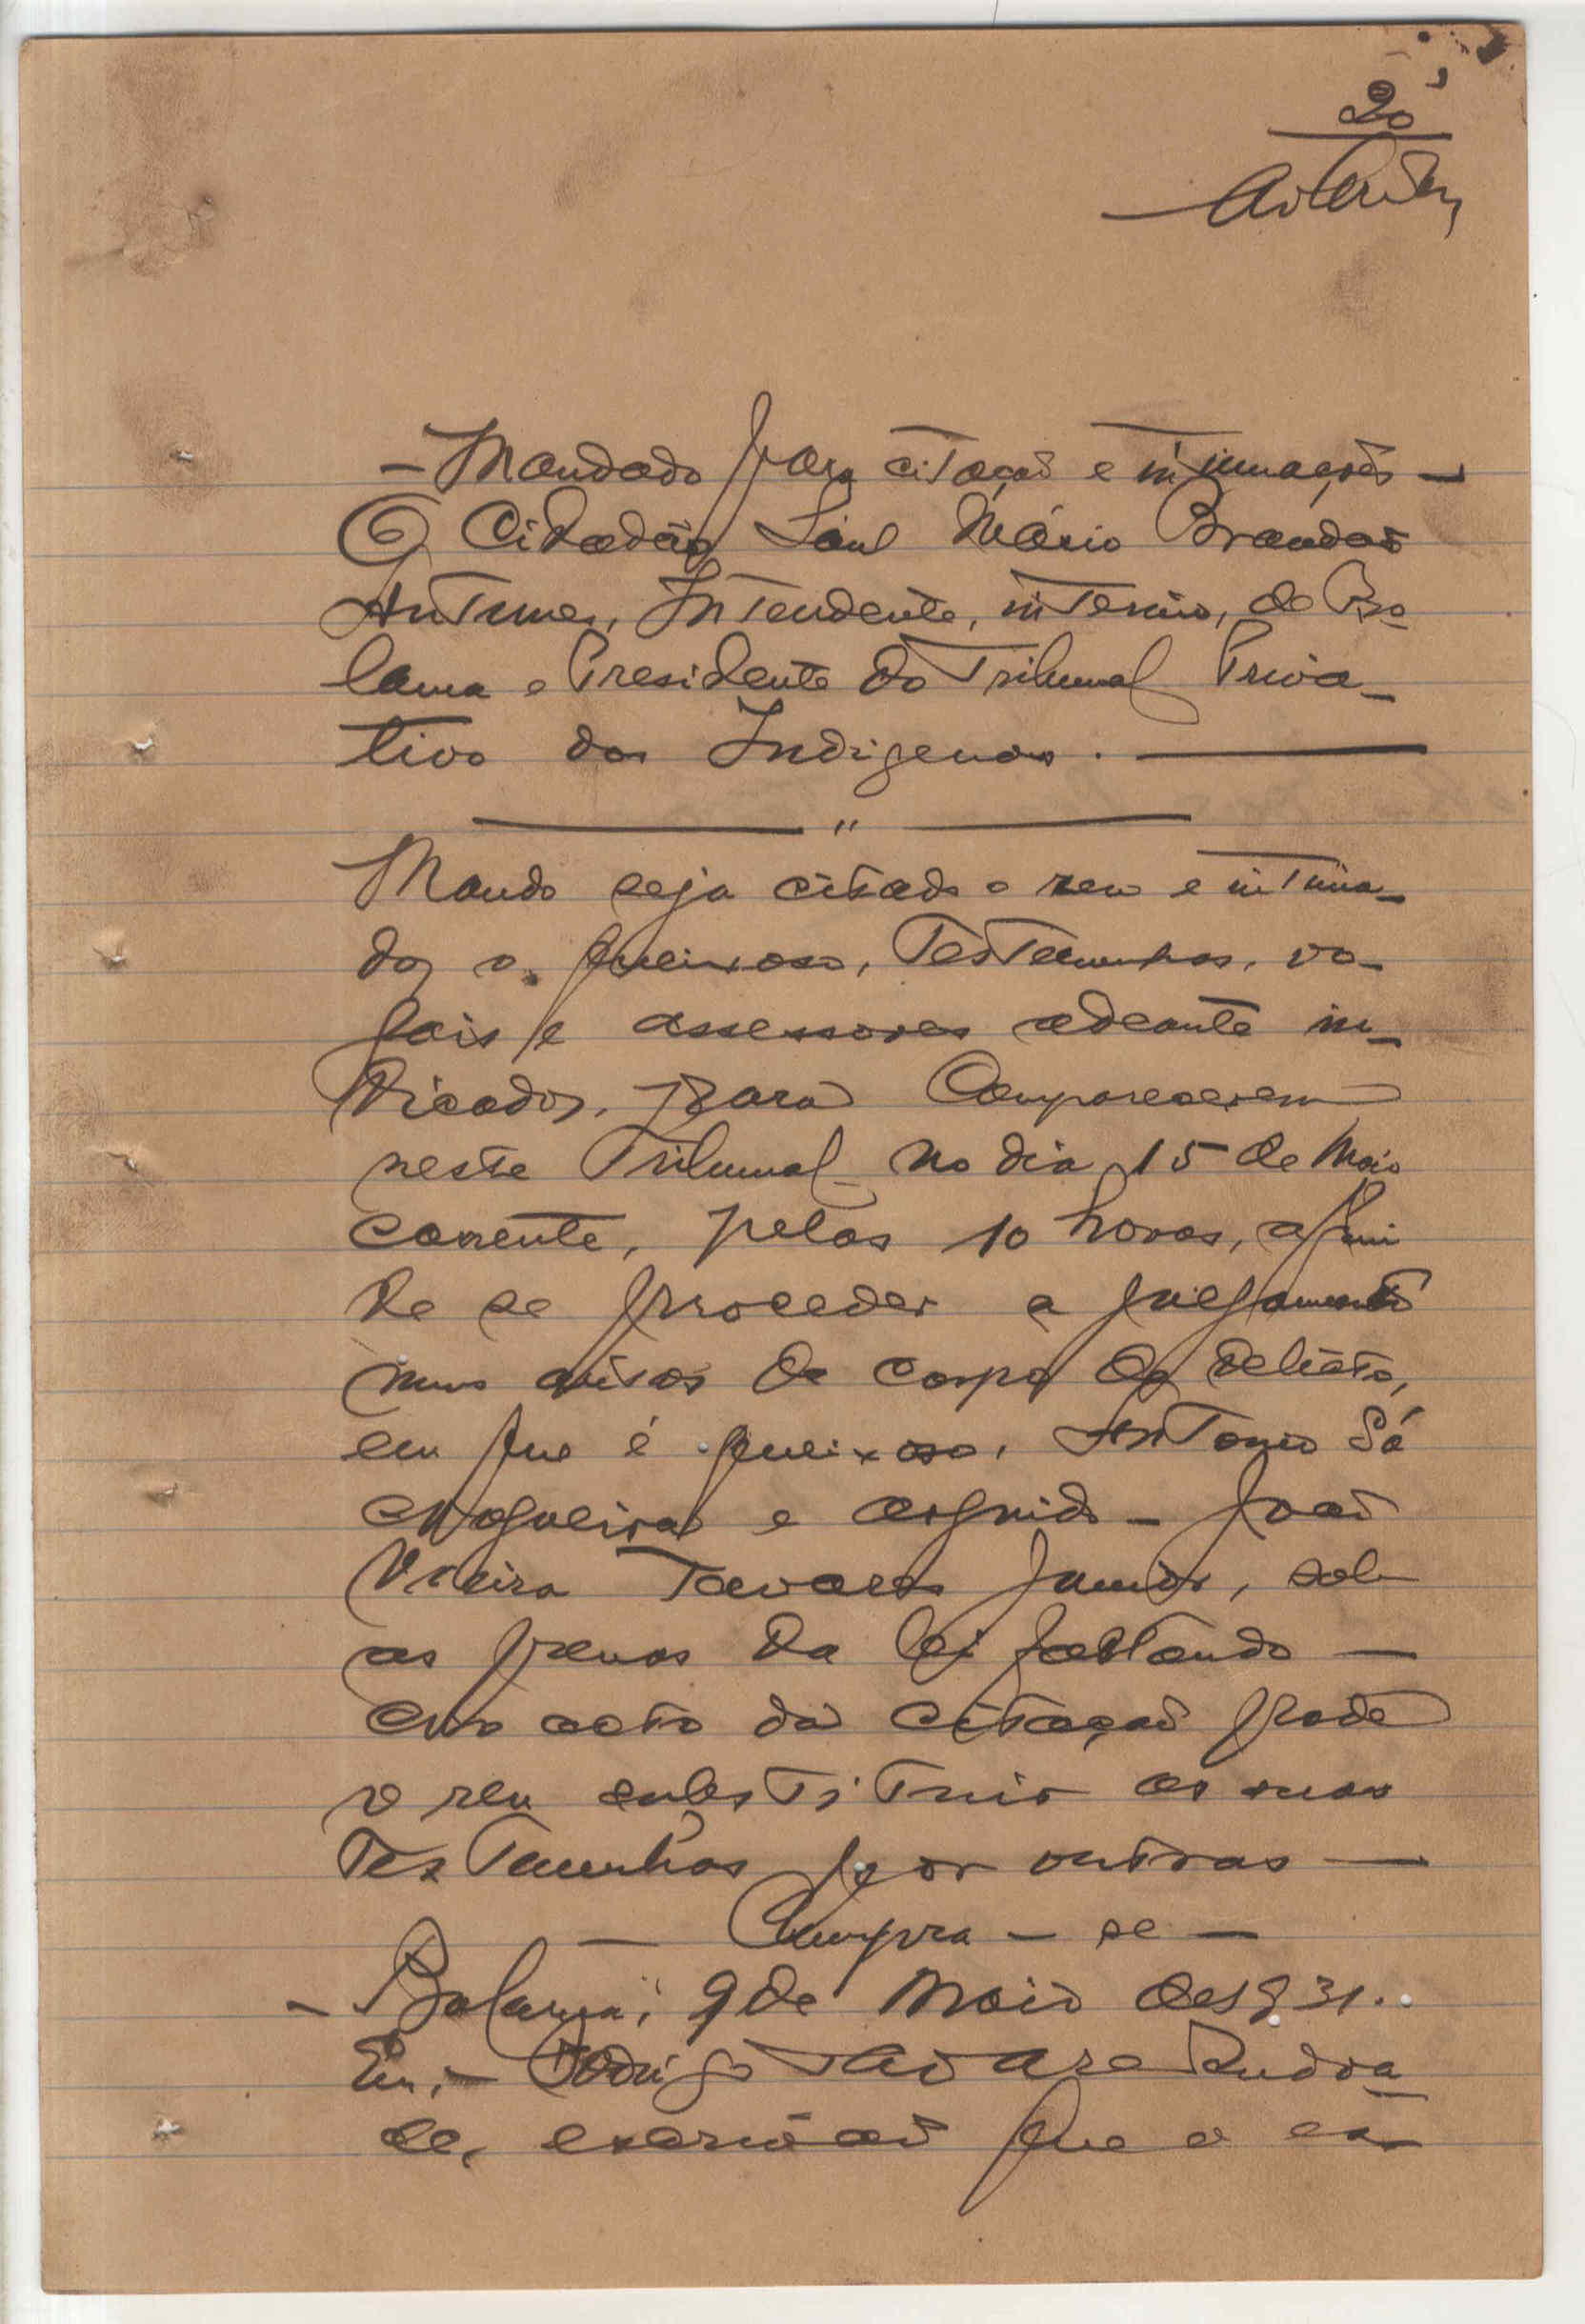 20
- Mandado para citação e intimações -
O Cidadão Saul Mário Brandão
Antunes, Intendente, interino, de Bo-
lama e Presidente do Tribunal Priva-
tivo dos Indigenas. —
— " —
Mando seja citado o reu e intima-
dos o queixoso, Testemunhas, vo-
gais e assessores adeante in-
dicados, para Comparecerem
neste Tribunal no dia 15 de Maio
corrente, pelas 10 horas, afim
de se proceder a julgamento
nuns autos de corpo de delicto,
em que é queixoso, Antonio Sá
Nogueira e arguido - João
Vieira Tavares Junior, sob
as penas da lei faltando —
No acto da citação pode
o reu substituir as suas
Testemunhas por outras —
— Cumpra - se —
- Bolama, 9 de Maio de 1931.
Eu, - Rodrigo Tavares Andra-
de, escrivão que o es-